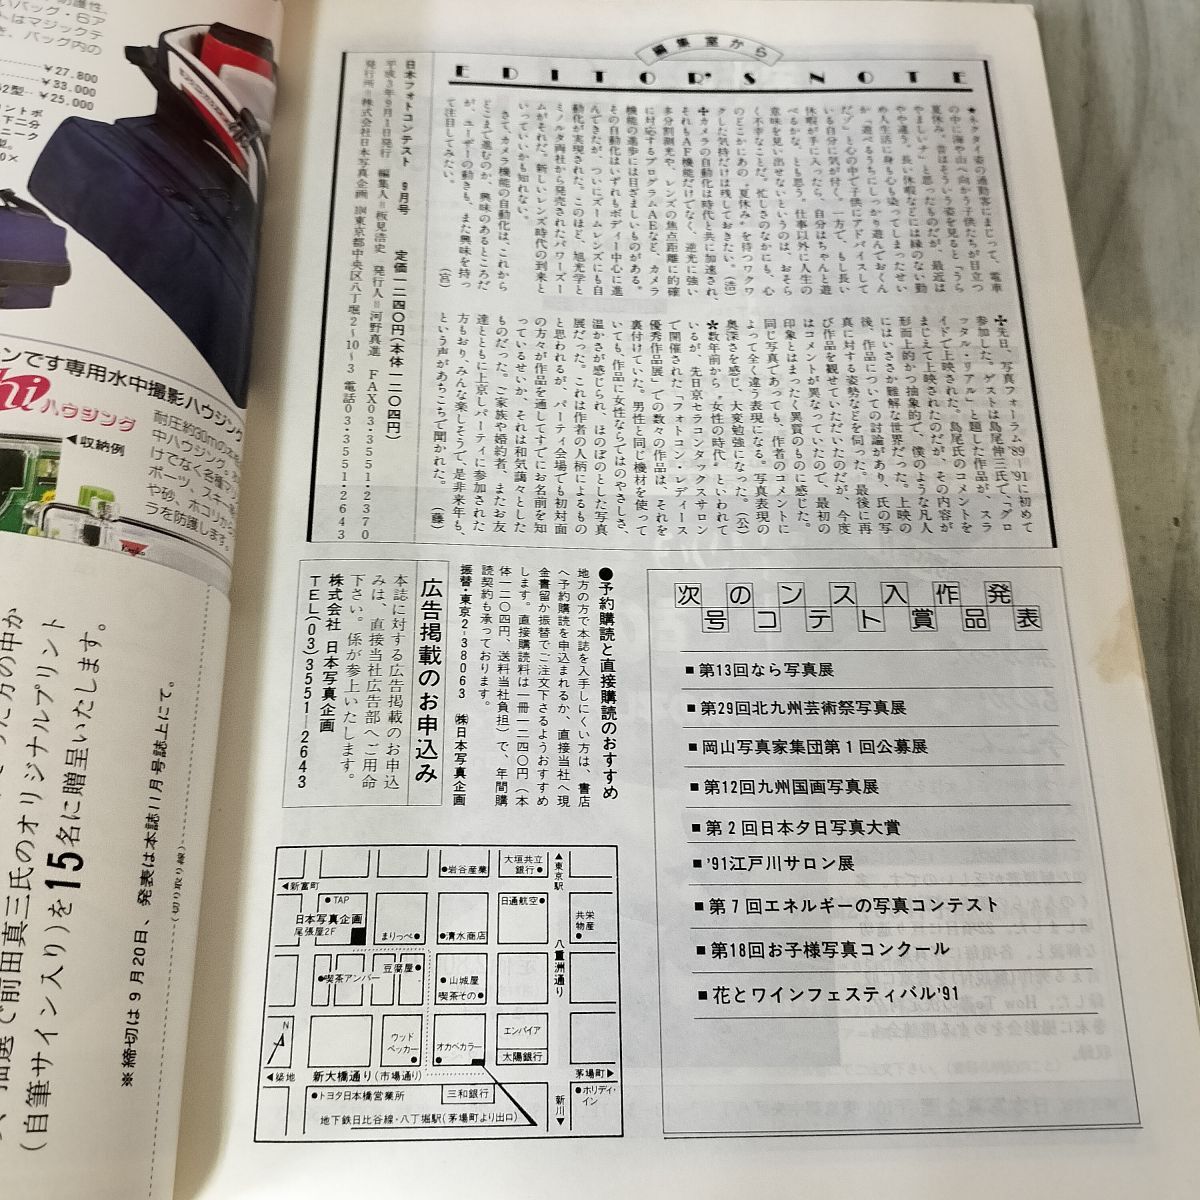 編集室から
EDITOR'S NOTE
★ネクタイ姿の通勤客にまじって、電車
の中に海や山へ向かう子供たちが目立つ
夏休み。昔はそういう姿を見ると「うら
やましいナ」と思ったものだが、最近は
やや違う。長い休暇などには縁のない勤
め人生活に身も心も染ってしまったせい
か「遊べるうちにしっかり遊んでおくん
だゾ」と心の中で子供にアドバイスして
いる自分に気が付く。一方で、もし長い
休暇が手に入ったら、自分はちゃんと遊
べるかな、とも思う。仕事以外に人生の
意味を見い出せないというのは、おそら
く不幸なことだ。忙しさのなかにも、心
のどこかにあの〝夏休み〟を待つワクワ
クした気持だけは残しておきたい。（浩）
✢カメラの自動化は時代と共に加速され、
それもAF機能だけでなく、逆光に強い
多分割測光や、レンズの焦点距離に的確
に対応するプログラムAEなど、カメラ
機能の進歩には目ざましいものがある。
その自動化はいずれもボディー中心に進
んできたが、ついにズームレンズにも自
動化が実現された。このほど、旭光学と
ミノルタ両社から発売されたパワーズー
ムがそれだ。新しいレンズ時代の到来と
いっていいかも知れない。
さて、カメラ機能の自動化は、これから
どこまで進むのか、興味のあるところだ
が、ユーザーの動きも、また興味を持っ
て注目してみたい。（宮）
✢先日、写真フォーラム'89―'91に初めて
参加した。ゲストは島尾伸三氏で、「グロ
ッタル・リアル」と題した作品が、スラ
イドで上映された。島尾氏のコメントを
まじえて上映されたのだが、その内容が
形而上的かつ抽象的で、僕のような凡人
にはいささか難解な世界だった。上映の
後、作品についての討論があり、氏の写
真に対する姿勢などを伺った。最後に再
び作品を観せていただいたのだが、今度
はコメントが異なっていたので、最初の
印象とはまったく異質のものに感じた。
同じ写真であっても、作者のコメントに
よって全く違う表現になる。写真表現の
奥深さを感じ、大変勉強になった。（公）
✿数年前から〝女性の時代〟といわれて
いるが、先日京セラコンタックスサロン
で開催された「フォトコン・レディース
優秀作品展」での数々の作品は、それを
裏付けていた。男性と同じ機材を使って
いても、作品に女性ならではのやさしさ、
温かさが感じられ、ほのぼのとした写真
展だった。これは作者の人柄によるもの
と思われるが、パーティ会場でも初対面
の方々が作品を通してすでにお名前を知
っているせいか、それは和気藹々とした
ものだった。ご家族や婚約者、またお友
達とともに上京しパーティに参加された
方もおり、みんな楽しそうで、是非来年も、
という声があちこちで聞かれた。（藤）
日本フォトコンテスト 9月号 定価一二四〇円（本体一二〇四円）
平成3年9月1日発行 編集人＝板見浩史 発行人＝河野真進 FAX03・3551・2370
発行所＝株式会社日本写真企画 東京都中央区八丁堀2〜10〜3 電話03・3551・2643
●予約購読と直接購読のおすすめ
地方の方で本誌を入手しにくい方は、書店
へ予約購読を申込まれるか、直接当社へ現
金書留か振替でご注文下さるようおすすめ
します。直接購読料は一冊一二四〇円（本
体一二〇四円、送料当社負担）で、年間購
読契約も承っております。
振替・東京2-38063 ㈱日本写真企画
広告掲載のお申込み
本誌に対する広告掲載のお申込
みは、直接当社広告部へご用命
下さい。係が参上いたします。
株式会社 日本写真企画
TEL(03)3551―2643
次号のコンテスト入賞作品発表
■第13回なら写真展
■第29回北九州芸術祭写真展
■岡山写真家集団第1回公募展
■第12回九州国画写真展
■第2回日本夕日写真大賞
■'91江戸川サロン展
■第7回エネルギーの写真コンテスト
■第18回お子様写真コンクール
■花とワインフェスティバル'91
●岩谷産業
大垣共立
銀行●
▲東京駅
◀新富町
●TAP
日本写真企画
尾張屋2F
まりっぺ●
●清水商店
日通航空●
共栄
物産
●
八重洲通り
豆腐屋●
●喫茶アンバー
●山城屋
喫茶その●
N
ウッド
ペッカー
●
オカベカラー
●
エンパイア
太陽銀行
◀築地
新大橋通り（市場通り）
茅場町▶
●トヨタ日本橋営業所
三和銀行
新川▼
●ホリディ・
イン
地下鉄日比谷線・八丁堀駅（茅場町より出口）
いバッグ・6ア
トはマジックテ
き、バッグ内の
￥27.800
￥33.000
52型‥￥25.000
ンです専用水中撮影ハウジング
hiハウジング
◀収納例
耐圧約30mの
中ハウジング。
けでなく各種マリ
ポーツ、スキー
や砂、ホコリから
ラを防護します。
Kenko
った方の中か
、抽選で前田真三氏のオリジナルプリント
（自筆サイン入り）を15名に贈呈いたします。
※締切は9月20日、発表は本誌11月号誌上にて。
（切り取り線）